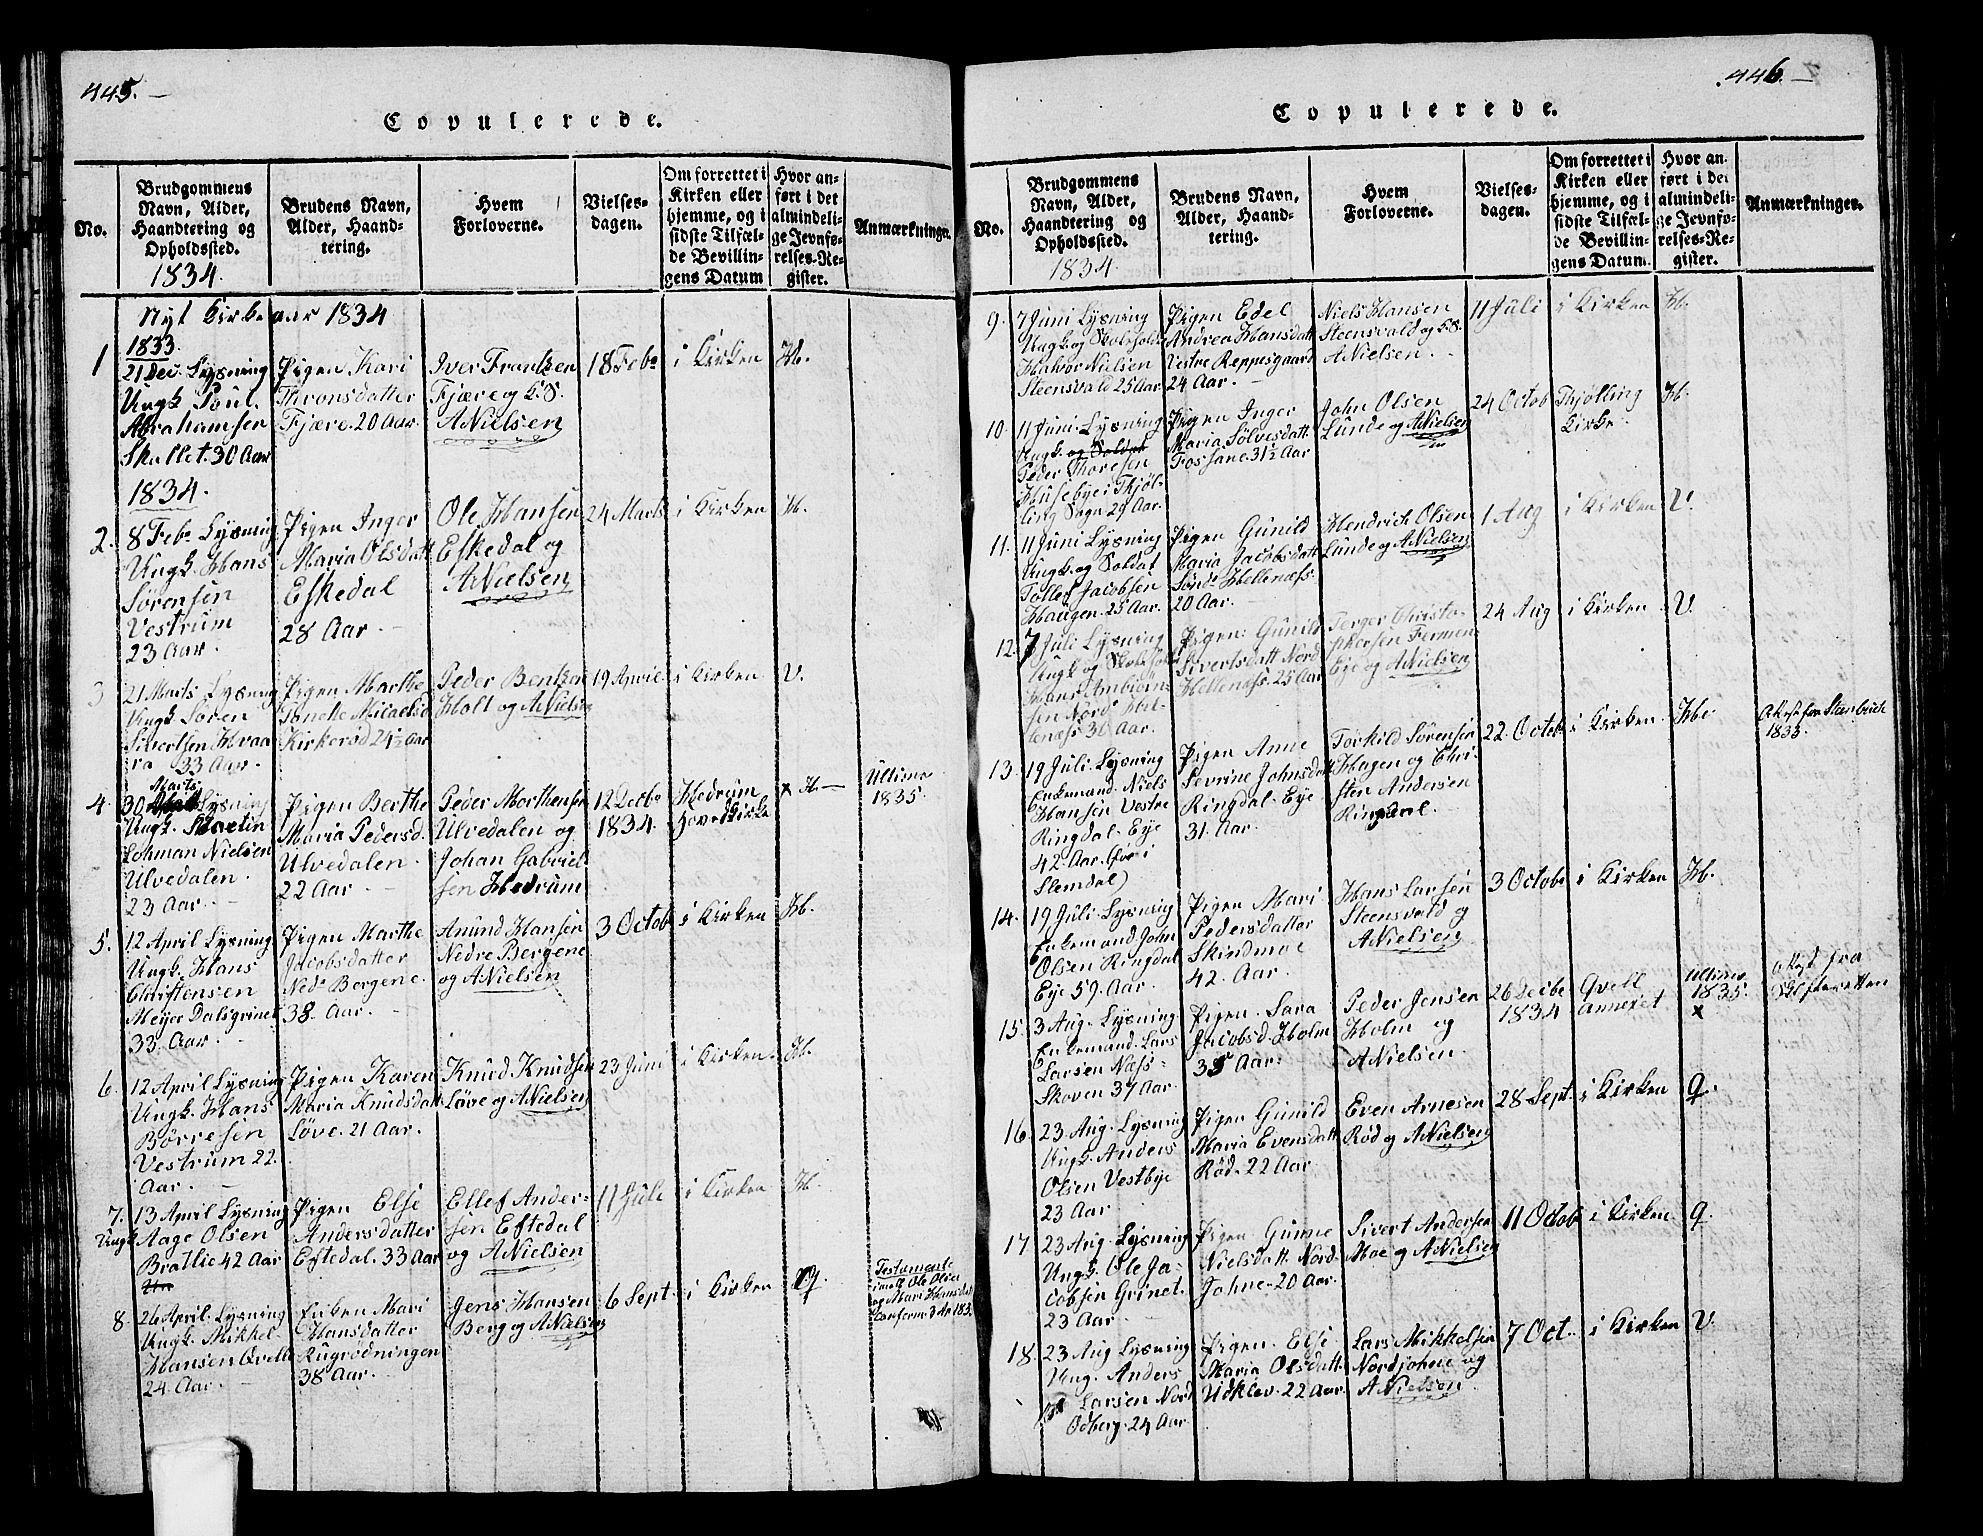 445.
Copulerede.
No.
Brudgommens
Navn, Alder,
Haandtering og
Opholdssted.
1834.
Brudens Navn,
Alder, Haand-
tering.
Hvem
Forloverne.
Vielses-
dagen.
Om forrettet i
Kirken eller
hjemme, og i
sidste Tilfæl-
de Bevillin-
gens Datum
Hvor an-
ført i det
almindeli-
ge Jevnfø-
relses-Re-
gister.
Anmærkninger.
Nyt Kirkeaar 1834
1
1833.
21 Dec. Lysning
Ungk Poul
Abrahamsen
Skallet. 30 Aar
Pigen Kari
Fjære. 20 Aar.
Iver Frantzen
Fjære og K.S.
ANielsen
18 Febr
i Kirken
H.
1834.
2.
8 Febr Lysning
Ungk. Hans
Sørensen
Vestrum
23 Aar.
Pigen Inger
Maria Olsdatt.
Eskedal
28 Aar.
Ole Hansen
Eskedal og
ANielsen
24 Marts
i Kirken
H.
3
21 Marts Lysning
Ungk Søren
Sivertsen Hvaa
ra 33 Aar.
Pigen Marthe
Tonette Micaelsd
Kirkerød 24½ Aar
Peder Bentzen
Holt og ANielsen
19 April
i Kirken
V.
4.
Marts
30 Lysning
Ungk. Martin
Lohman Nielsen
Ulvedalen.
23 Aar.
Pigen Berthe
Maria Pedersd.
Ulvedalen.
22 Aar
Peder Morthensen
Ulvedalen og
Johan Gabriel-
sen Hedrum
12 Decbr
1834.
Hedrum
Hovedkirke
x H.
Ultimo
1835.
5.
12 April Lysning
Ungk. Hans
Christensen
Meyer Dalsgrinet
33 Aar.
Pigen Marthe
Jacobsdatter
Nedr Bergene.
38 Aar.
Anund Hansen
Nedre Bergene
og ANielsen
3 Octob
i Kirken
H.
6.
12 April Lysning
Ungk. Hans
Børresen
Vestrum 22.
Aar.
Pigen Karen
Maria Knudsdatt
Løve. 21 Aar.
Knud Knudsen
Løve og ANielsen
23 Juni
i Kirken.
H.
7.
Ungk
13 April Lysning
Aage Olsen
Bratlie 42 Aar
Pigen Else
Andersdatter
Eftedal. 33 Aar
Ellef Ander-
sen Eftedal
og ANielsen
11 Juli
i Kirken
H.
8.
26 April. Lysning
Ungk. Mikkel
Hansen Qvelle
24. Aar.
Enken Mari
Hansdatter
Rugrødningen
38 Aar.
Jens Hansen
Berg og ANielsen
6 Sept.
i Kirken
Q.
Testamente
Ole Olsen
og Mari Hansdatt
446.
Copulerede.
No.
Brudgommens
Navn, Alder,
Haandtering og
Opholdssted.
1834
Brudens Navn,
Alder, Haand-
tering.
Hvem
Forloverne.
Vielses-
dagen.
Om forrettet i
Kirken eller
hjemme, og i
sidste Tilfæl-
de Bevillin-
gens Datum.
Hvor an-
ført i det
almindeli-
ge Jevnfø-
relses-Re-
gister.
Anmærkninger.
9.
7 Juni Lysning
Ungk og Skoleholder
Halvor Nielsen
Steensvald 25 Aar
Pigen Edel
Andrea Hansdatt
Vestre Reppesgaard
24 Aar.
Niels Hansen
Steensvald og K.S.
ANielsen.
11 Juli
i Kirken
H.
10.
11 Juni Lysning
Ungk. og Soldat
Peder Thoresen
Husebye i Thjøl-
ling Sogn 29 Aar.
Pigen Inger
Maria Sølvesdatt
Fossane. 31½ Aar
John Olsen
Lunde og ANielsen
24 Octob
Thjølling
Kirke.
H.
11.
11 Juni Lysning
Ungk. og Soldat
Tollef Jacobsen
Haugen. 25 Aar.
Pigen Gunild
Maria Jacobsdatt
Søndr Hellenæss.
20 Aar.
Hendrich Olsen
Lunde og ANielsen
1 Aug
i Kirken
V.
12.
7 Juli Lysning
Ungk og Skoleholder
Hans Ambiørn-
sen Nordr Hel-
lenæss. 30 Aar.
Pigen: Gunild
Sivertsdatt Nord
Hellenæss. 25 Aar
Torger Christo-
phersen Fermen
Eje og ANielsen
24 Aug
i Kirken
V.
13.
19 Juli. Lysning
Enkemand. Niels
Hansen Vestre
Ringdal. Eje
42 Aar. (før i
Slemdal)
Pigen Anne
Sevrine Johnsdatt
Ringdal. Eje
31. Aar.
Torkild Sørensen
Hagen og Chri-
sten Andersen
Ringdal.
22. Octob
i Kirken.
Attest fra Steenbuch
1835.
14.
19 Juli. Lysning
Enkemand John
Olsen Ringdal
Eje 59. Aar.
Pigen Mari
Pedersdatter
Skindmoe
42. Aar.
Hans Larsen
Steensvald og
ANielsen
3 Octobr
i Kirken
H.
15.
3 Aug. Lysning.
Enkemand. Lars
Larsen Næss-
Skoven 37 Aar
Pigen. Sara
Jacobsd. Holm
35 Aar.
Peder Jensen
Holm og
ANielsen.
26 Decbr
1834
Qvelle
Annexet
Ultimo
1835.
x
Attest fra
Skifteretten
16.
23. Aug. Lysning
Ungk. Anders
Olsen Vestbye
23 Aar
Pigen Gunild
Maria Evensdatt
Rød. 22 Aar
Even Arnesen
Rød og ANielsen
28 Sept.
i Kirken
Q.
17
23 Aug. Lysning
Ungk. Ole Ja-
cobsen Grinet.
23 Aar
Pigen Gunne
Nielsdatt. Nord-
Jahne. 20 Aar.
Sivert Andersen
Moe og ANielsen
11 Octob
i Kirken.
Q.
18.
23 Aug Lysning
Ung. Anders
Larsen Nord
Odberg. 24 Aar
Pigen. Else
Maria Olsdatt.
Udklev. 22 Aar.
Lars Mikkelsen
Nordjahne og
ANielsen.
7 Oct.
i Kirken
V.